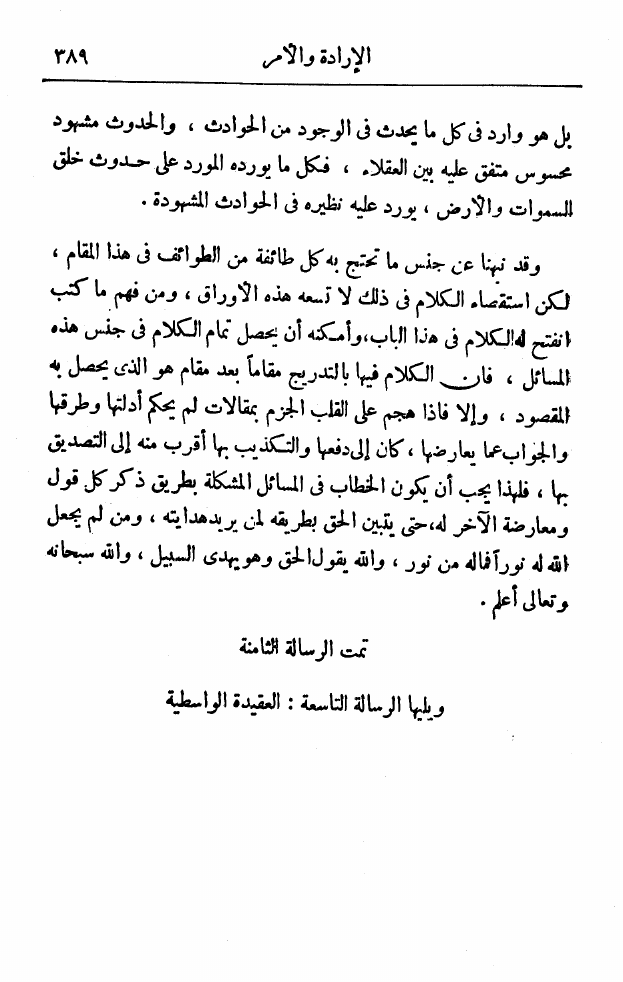 الإرادة والأمر ٣٨٩
بل هو وارد فى كل ما يحدث فى الوجود من الحوادث ، والحدوث مشهود
محسوس متفق عليه بين العقلاء ، فكل ما يورده المورد على حدوث خلق
السموات والأرض ، يورد عليه نظيره فى الحوادث المشهودة .
وقد نبهنا عن جنس ما تحتج به كل طائفة من الطوائف فى هذا المقام ،
لكن استقصاء الكلام فى ذلك لا تسعه هذه الأوراق ، ومن فهم ما كتب
انفتح له الكلام فى هذا الباب، وأمكنه أن يحصل تمام الكلام فى جنس هذه
المسائل ، فان الكلام فيها بالتدريج مقاماً بعد مقام هو الذى يحصل به
المقصود ، وإلا فاذا هجم على القلب الجزم بمقالات لم يحكم أدلتها وطرقها
والجواب عما يعارضها ، كان إلى دفعها والتكذيب بها أقرب منه إلى التصديق
بها ، فلهذا يجب أن يكون الخطاب فى المسائل المشكلة بطريق ذكر كل قول
ومعارضة الآخر له، حتى يتبين الحق بطريقه لمن يريد هدايته ، ومن لم يجعل
الله له نوراً فماله من نور ، والله يقول الحق وهو يهدى السبيل ، والله سبحانه
وتعالى أعلم .
تمت الرسالة الثامنة
ويليها الرسالة التاسعة : العقيدة الواسطية